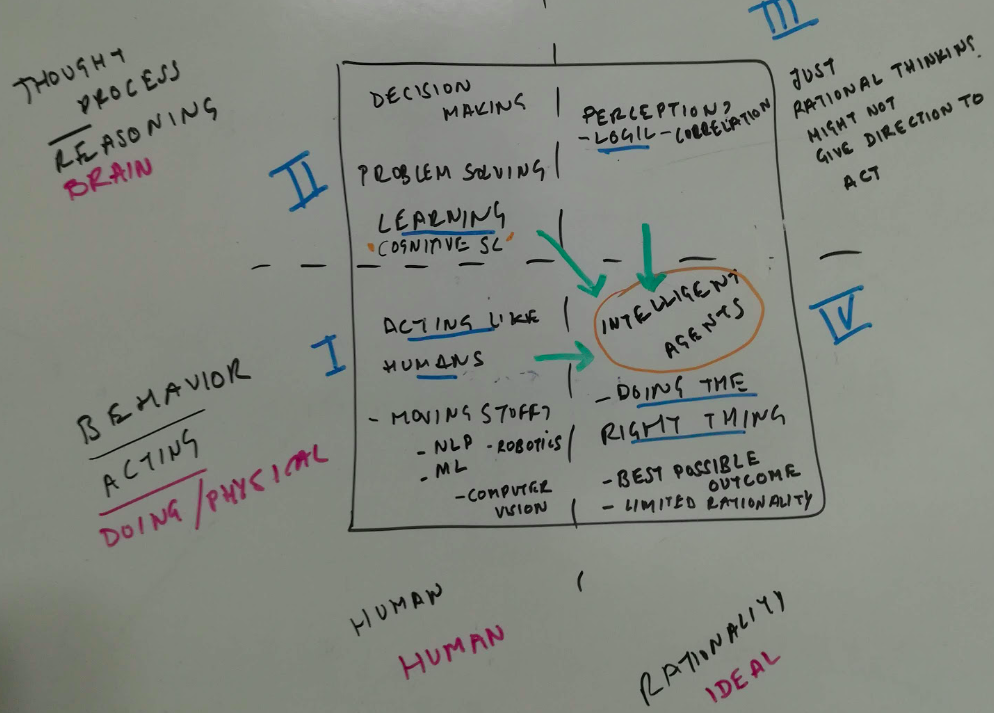 THOUGHT
PROCESS
REASONING
BRAIN
II
DECISION
MAKING
PROBLEM SOLVING
LEARNING
"COGNITIVE SC"
PERCEPTION?
-LOGIC - CORRELATION
III
JUST
RATIONAL THINKING
MIGHT NOT
GIVE DIRECTION TO
ACT
I
ACTING LIKE
HUMANS
- MOVING STUFF?
- NLP - ROBOTICS
- ML
- COMPUTER
VISION
INTELLIGENT
AGENTS
- DOING THE
RIGHT THING
- BEST POSSIBLE
OUTCOME
- LIMITED RATIONALITY
IV
BEHAVIOR
ACTING
DOING/PHYSICAL
HUMAN
HUMAN
RATIONALITY
IDEAL